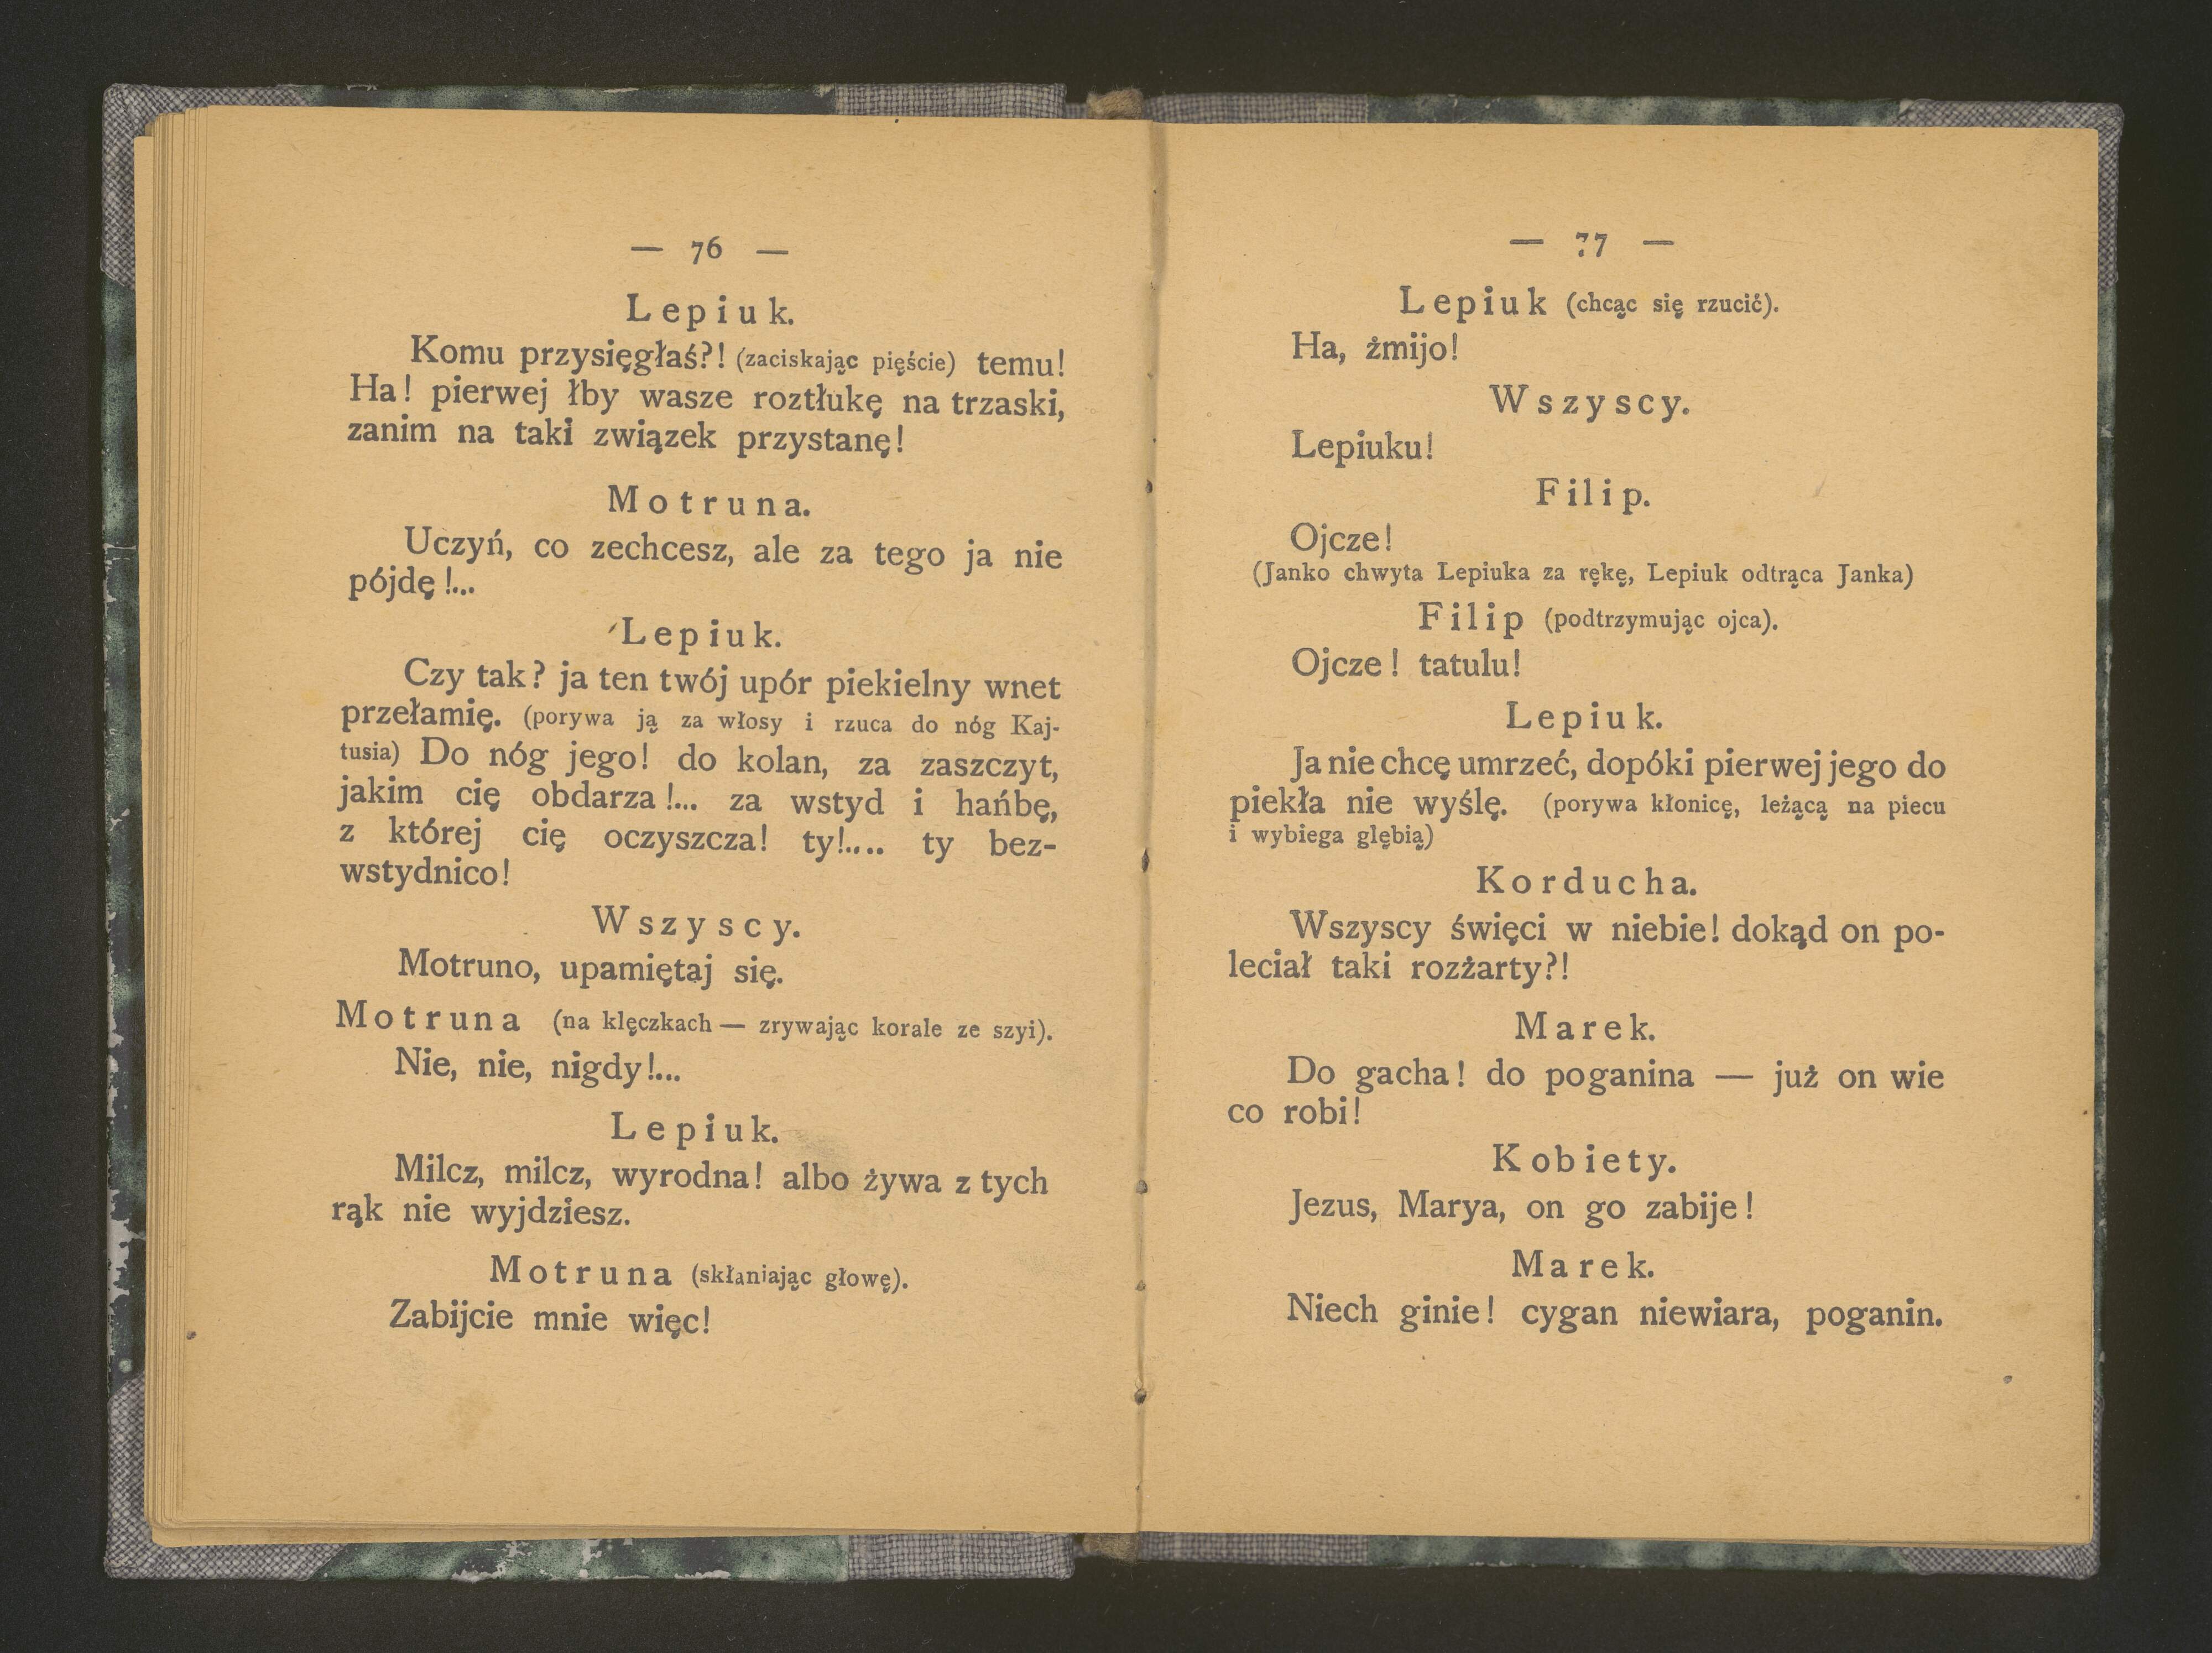 — 76 —
Lepiuk.
Komu przysięgłaś?! (zaciskając pięście) temu!
Ha! pierwej łby wasze roztłukę na trzaski,
zanim na taki związek przystanę!
Motruna.
Uczyń, co zechcesz, ale za tego ja nie
pójdę!...
Lepiuk.
Czy tak? ja ten twój upór piekielny wnet
przełamię. (porywa ją za włosy i rzuca do nóg Kaj-
tusia) Do nóg jego! do kolan, za zaszczyt,
jakim cię obdarza!... za wstyd i hańbę,
z której cię oczyszcza! ty!.... ty bez-
wstydnico!
Wszyscy.
Motruno, upamiętaj się.
Motruna (na klęczkach — zrywając korale ze szyi).
Nie, nie, nigdy!...
Lepiuk.
Milcz, milcz, wyrodna! albo żywa z tych
rąk nie wyjdziesz.
Motruna (skłaniając głowę).
Zabijcie mnie więc!
— 77 —
Lepiuk (chcąc się rzucić).
Ha, żmijo!
Wszyscy.
Lepiuku!
Filip.
Ojcze!
(Janko chwyta Lepiuka za rękę, Lepiuk odtrąca Janka)
Filip (podtrzymując ojca).
Ojcze! tatulu!
Lepiuk.
Ja nie chcę umrzeć, dopóki pierwej jego do
piekła nie wyślę. (porywa kłonicę, leżącą na piecu
i wybiega głębią)
Korducha.
Wszyscy święci w niebie! dokąd on po-
leciał taki rozżarty?!
Marek.
Do gacha! do poganina — już on wie
co robi!
Kobiety.
Jezus, Marya, on go zabije!
Marek.
Niech ginie! cygan niewiara, poganin.